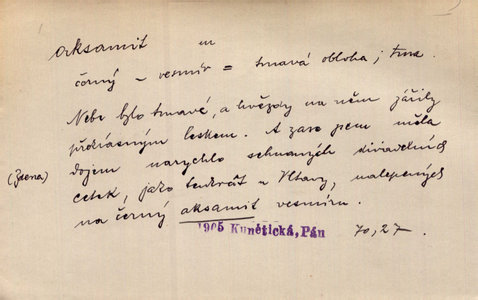 aksamit m
černý ~ vesmír = tmavá obloha; tma.
Nebe bylo tmavé, a hvězdy na něm zářily
překrásným leskem. A zase jsem měla
dojem narychlo sehnaných divadelních
(žena)
cetek, jako tenkrát u Vltavy, nalepených
na černý aksamit vesmíru.
1905 Kunětická, Pán 70,27.